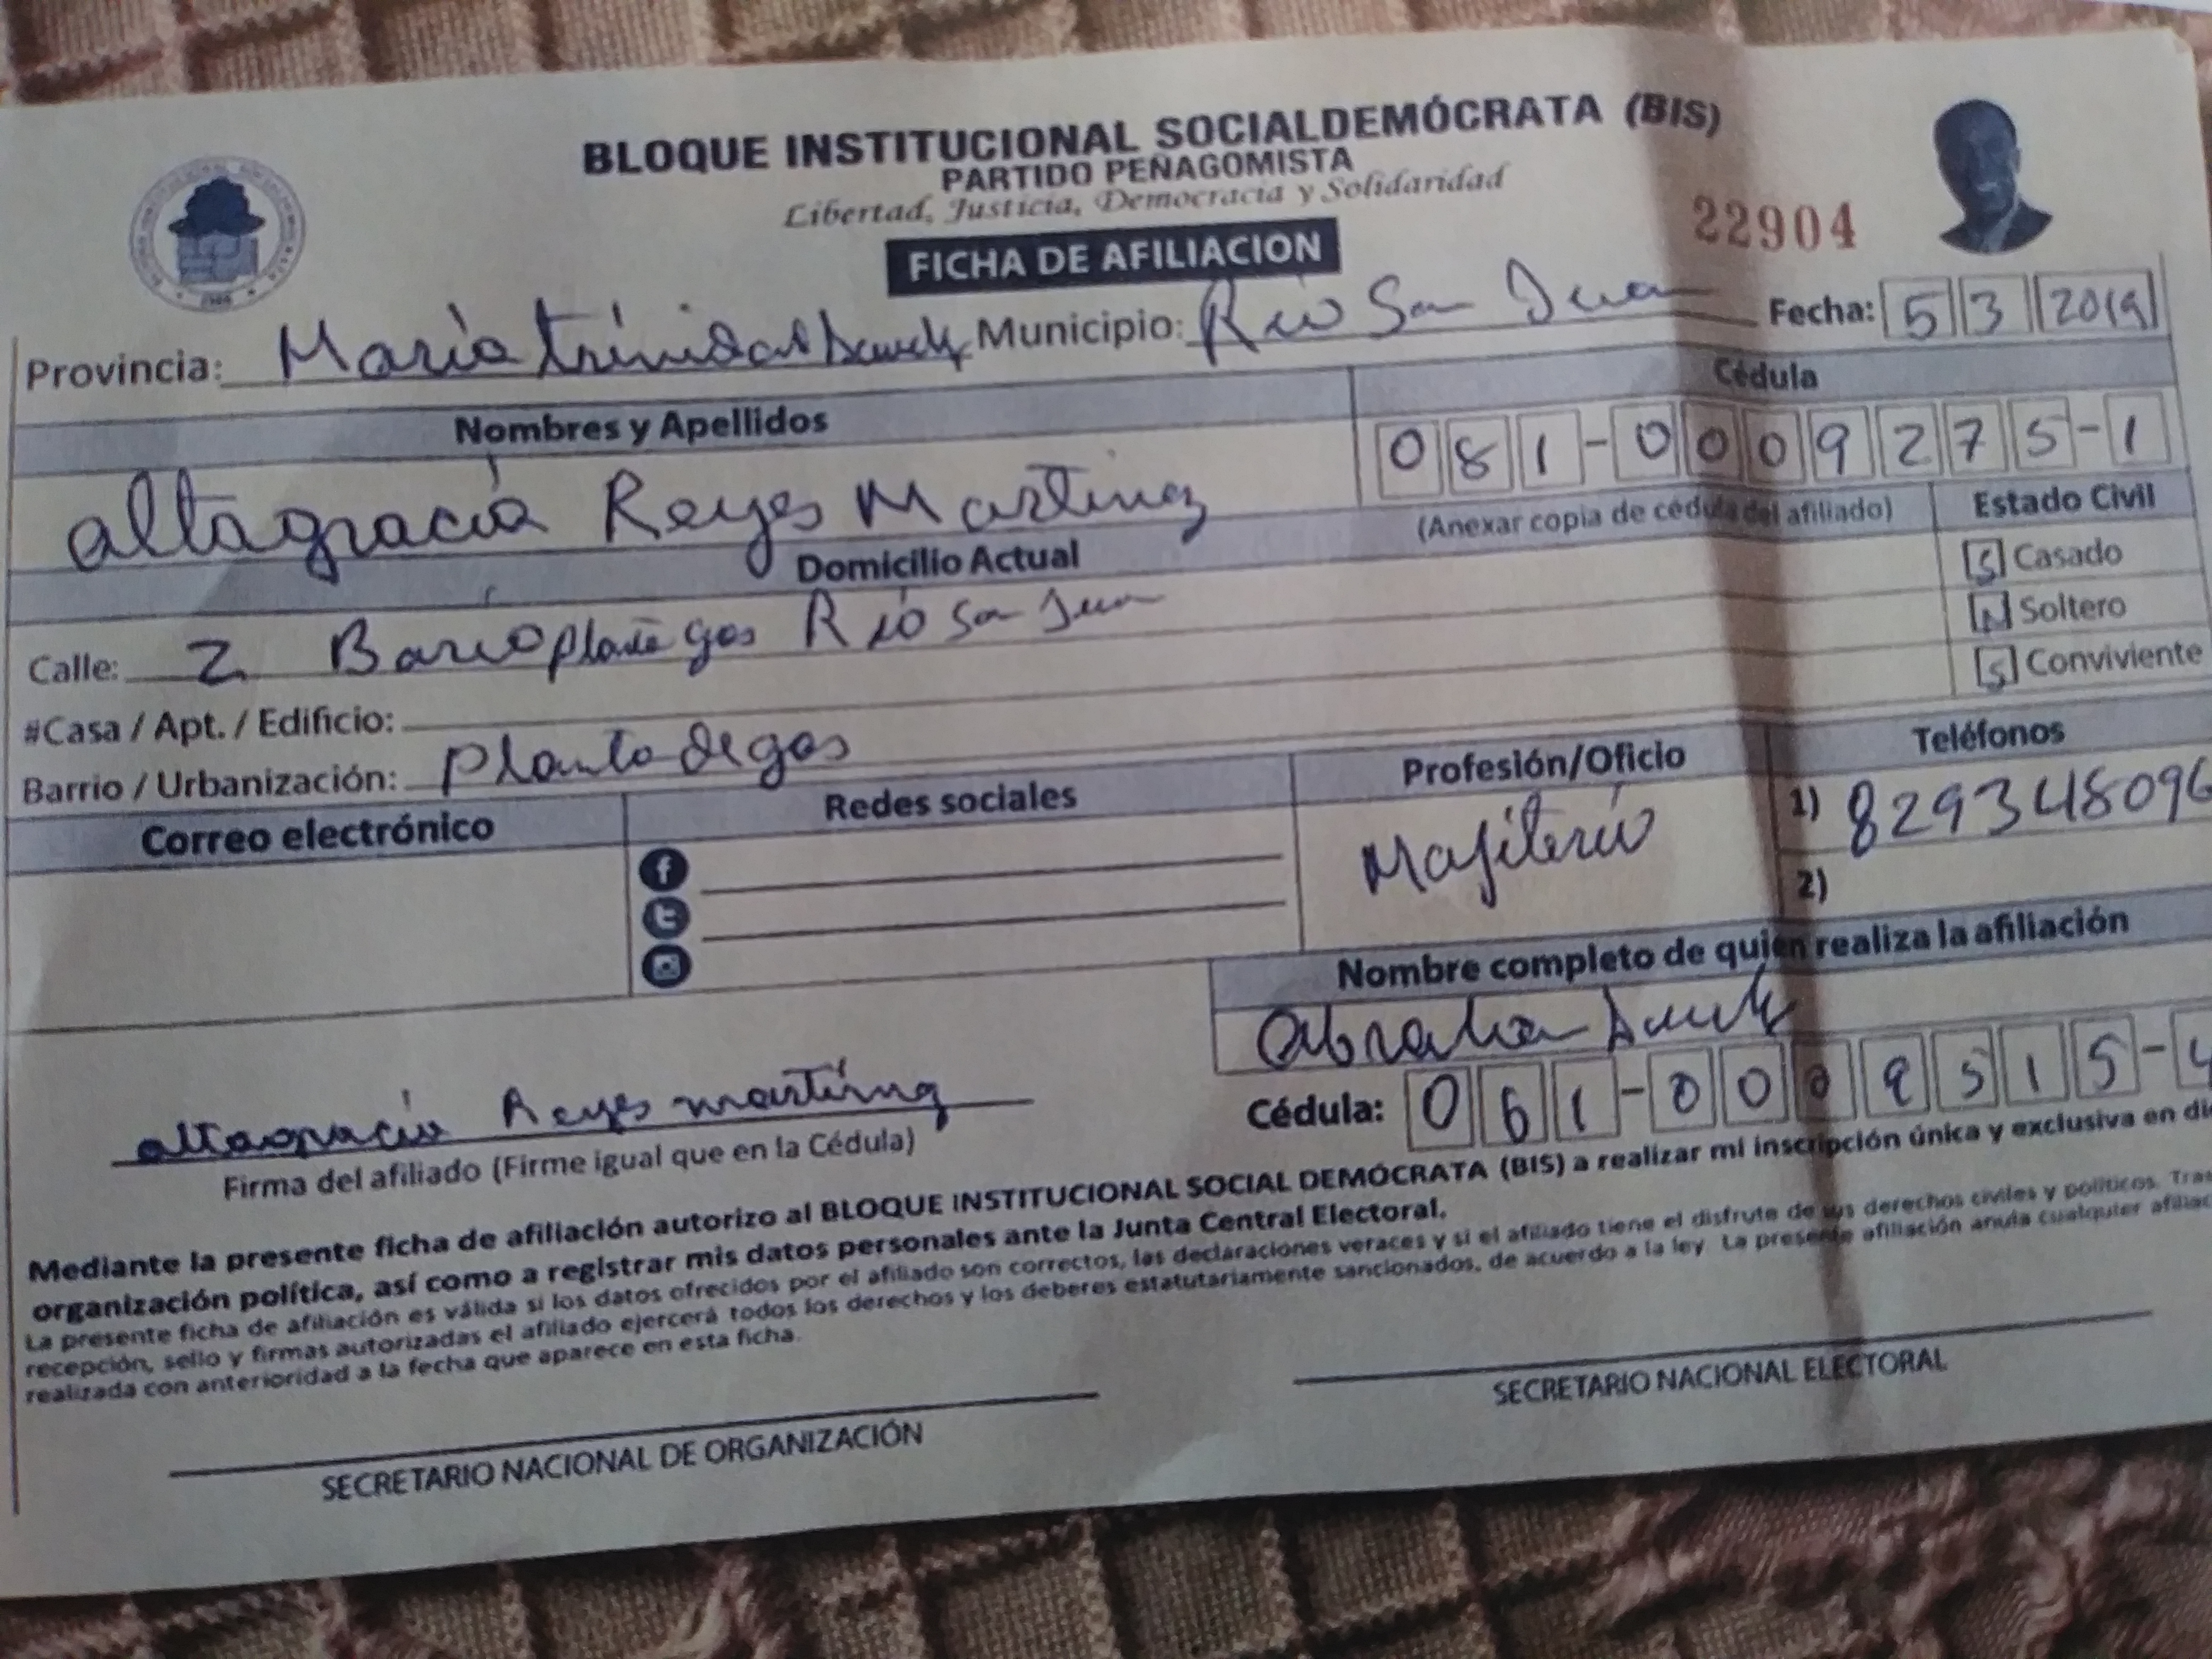 BLOQUE INSTITUCIONAL SOCIALDEMÓCRATA (BIS)
PARTIDO PEÑAGOMISTA
Libertad, Justicia, Democracia y Solidaridad
22904
FICHA DE AFILIACION
Provincia: Maria trinidad Municipio: Rio San Juan Fecha: 5 3 2019
Nombres y Apellidos Cédula
altagracia Reyes Martinez 081-0009275-1
(Anexar copia de cédula del afiliado) Estado Civil
Domicilio Actual
[S] Casado
Calle: 2 Bario gas Rio San Juan
[N] Soltero
#Casa / Apt. / Edificio:
[S] Conviviente
Barrio / Urbanización: Planta de gas
Correo electrónico Redes sociales Profesión/Oficio Teléfonos
Majiterio 1) 829348096
2)
Nombre completo de quien realiza la afiliación
Abraham
altagracia Reyes martinez
Firma del afiliado (Firme igual que en la Cédula)
Cédula: 061-0009515-4
Mediante la presente ficha de afiliación autorizo al BLOQUE INSTITUCIONAL SOCIAL DEMÓCRATA (BIS) a realizar mi inscripción única y exclusiva en
organización política, así como a registrar mis datos personales ante la Junta Central Electoral.
La presente ficha de afiliación es válida si los datos ofrecidos por el afiliado son correctos, las declaraciones veraces y si el afiliado tiene el disfrute de sus derechos civiles y políticos.
recepción, sello y firmas autorizadas el afiliado ejercerá todos los derechos y los deberes estatutariamente sancionados, de acuerdo a la ley. La presente afiliación anula cualquier
realizada con anterioridad a la fecha que aparece en esta ficha.
SECRETARIO NACIONAL DE ORGANIZACIÓN SECRETARIO NACIONAL ELECTORAL